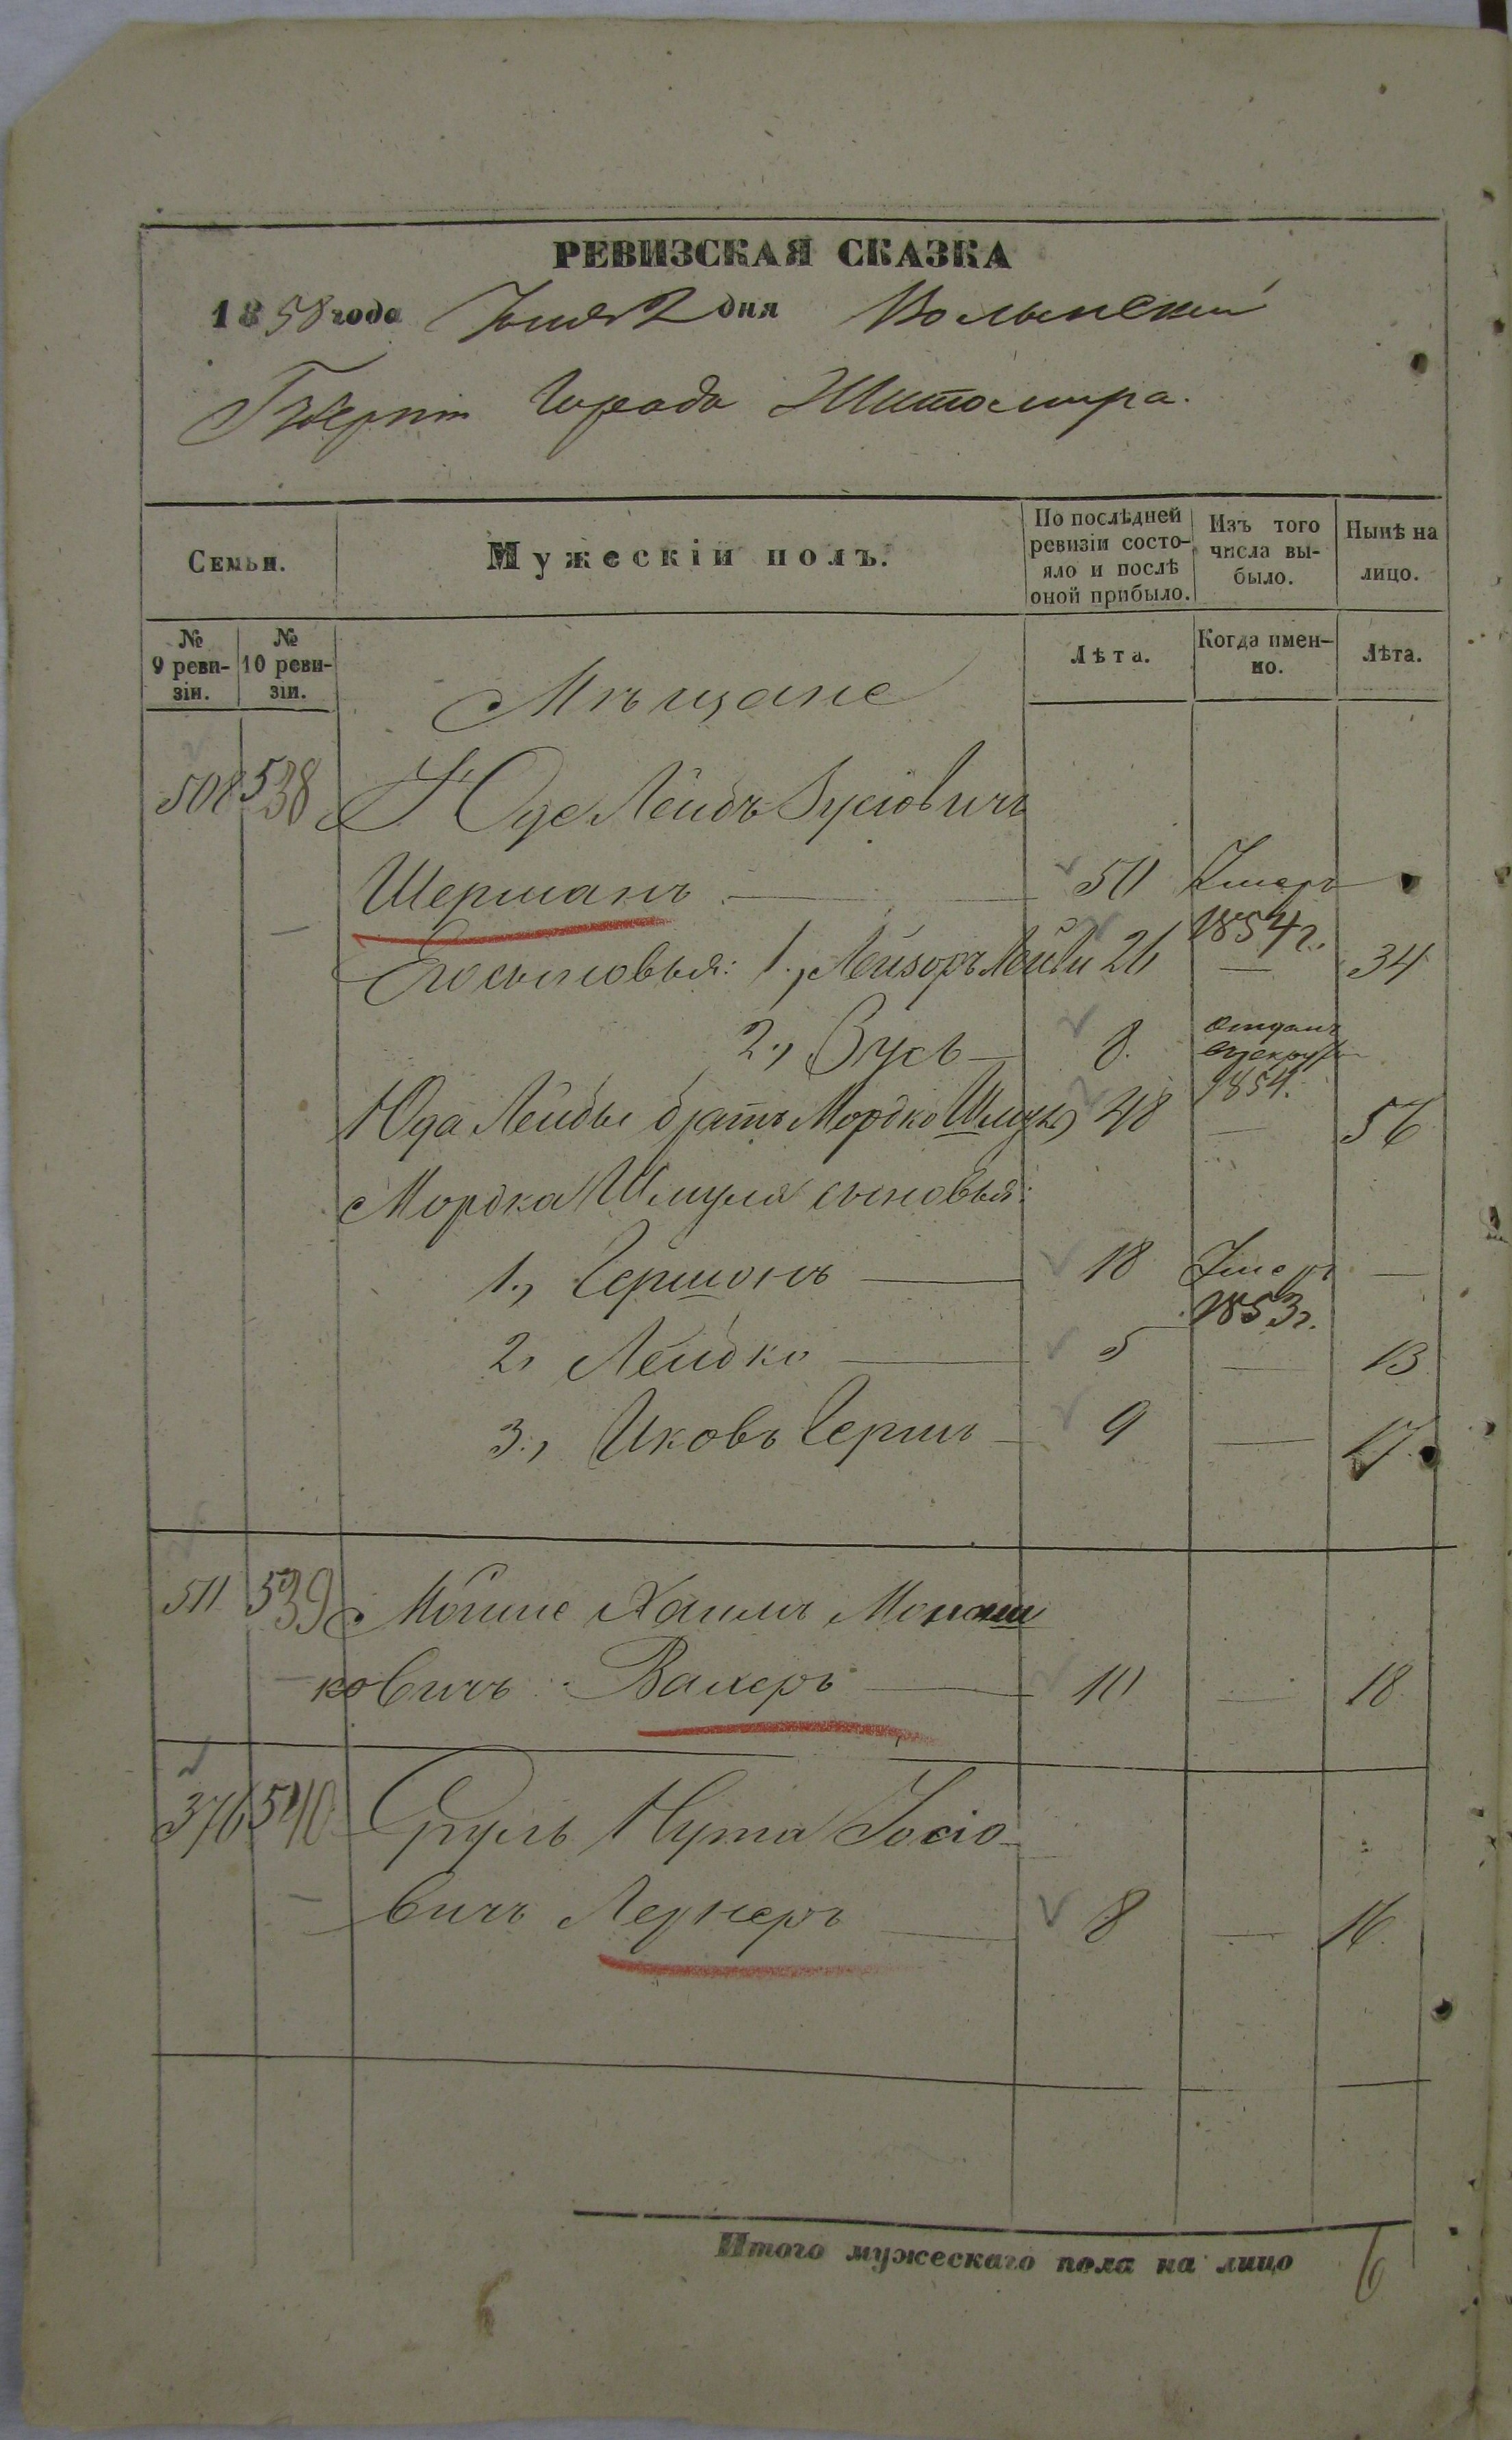 РЕВИЗСКАЯ СКАЗКА
1858 года Іюня 2 дня Волынской
Губерніи Города Житомира.
Семьи. Мужескій полъ. По послѣдней ревизіи состояло и послѣ оной прибыло. Изъ того числа выбыло. Нынѣ на лицо.
№ 9 ревизіи. № 10 ревизіи. Лѣта. Когда именно. Лѣта.
Мѣщане
508 538 Юде Лейбъ Зусіовичъ
Шерманъ — 50 Умеръ 1854 г.
Его сыновья: 1., Лейзоръ Лейви 26 — 34
2., Зусь — 8. отданъ в рекруты 1854.
Юда Лейбы братъ Мордко Шмуль 48 — 56
Мордка Шмуля сыновья:
1., Гершонъ — 18 Умеръ 1853 г. —
2, Лейбко — 5 — 13
3., Иковъ Гершъ — 9 — 17.
511 539 Мойше Хаимъ Монаш
ковичъ Валеръ — 10 — 18
376 540 Сруль Нута Іосіо-
вичъ Лернеръ — 8 — 16.
Итого мужескаго пола на лицо 6